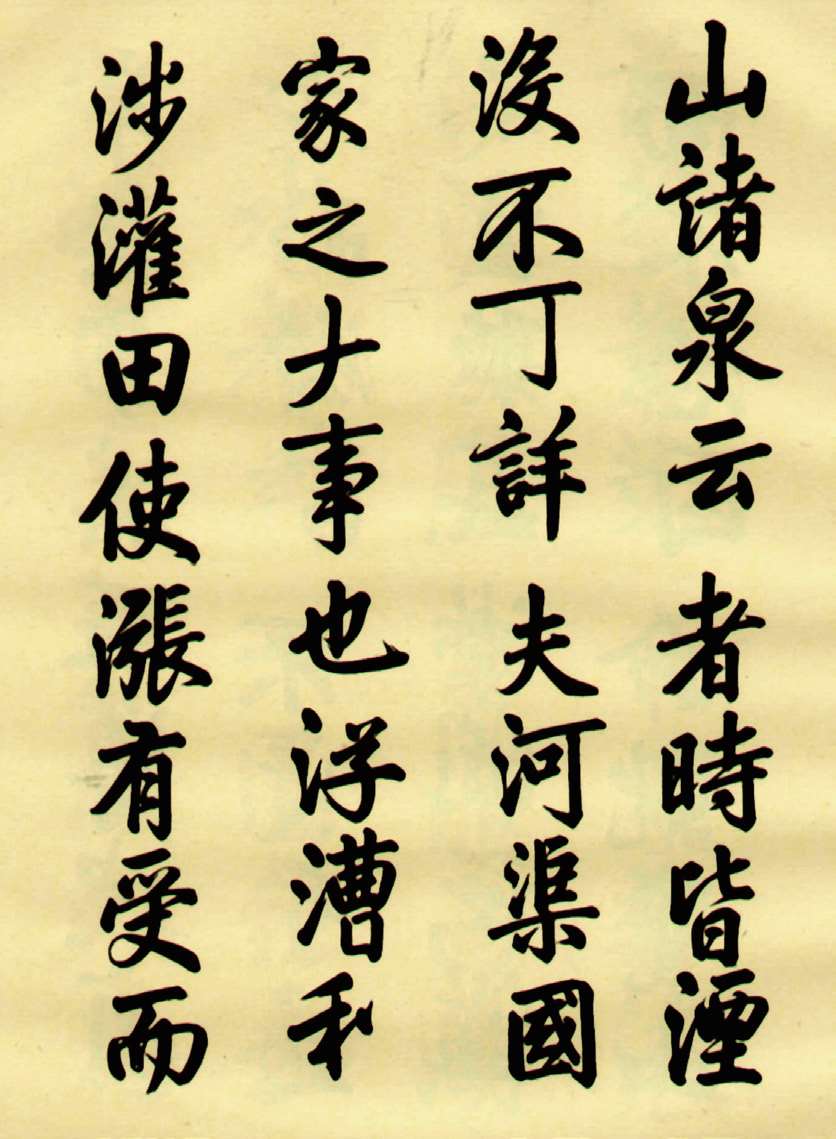 山諸泉云者時皆湮
没不可詳夫河渠國
家之大事也浮漕利
涉灌田使漲有受而